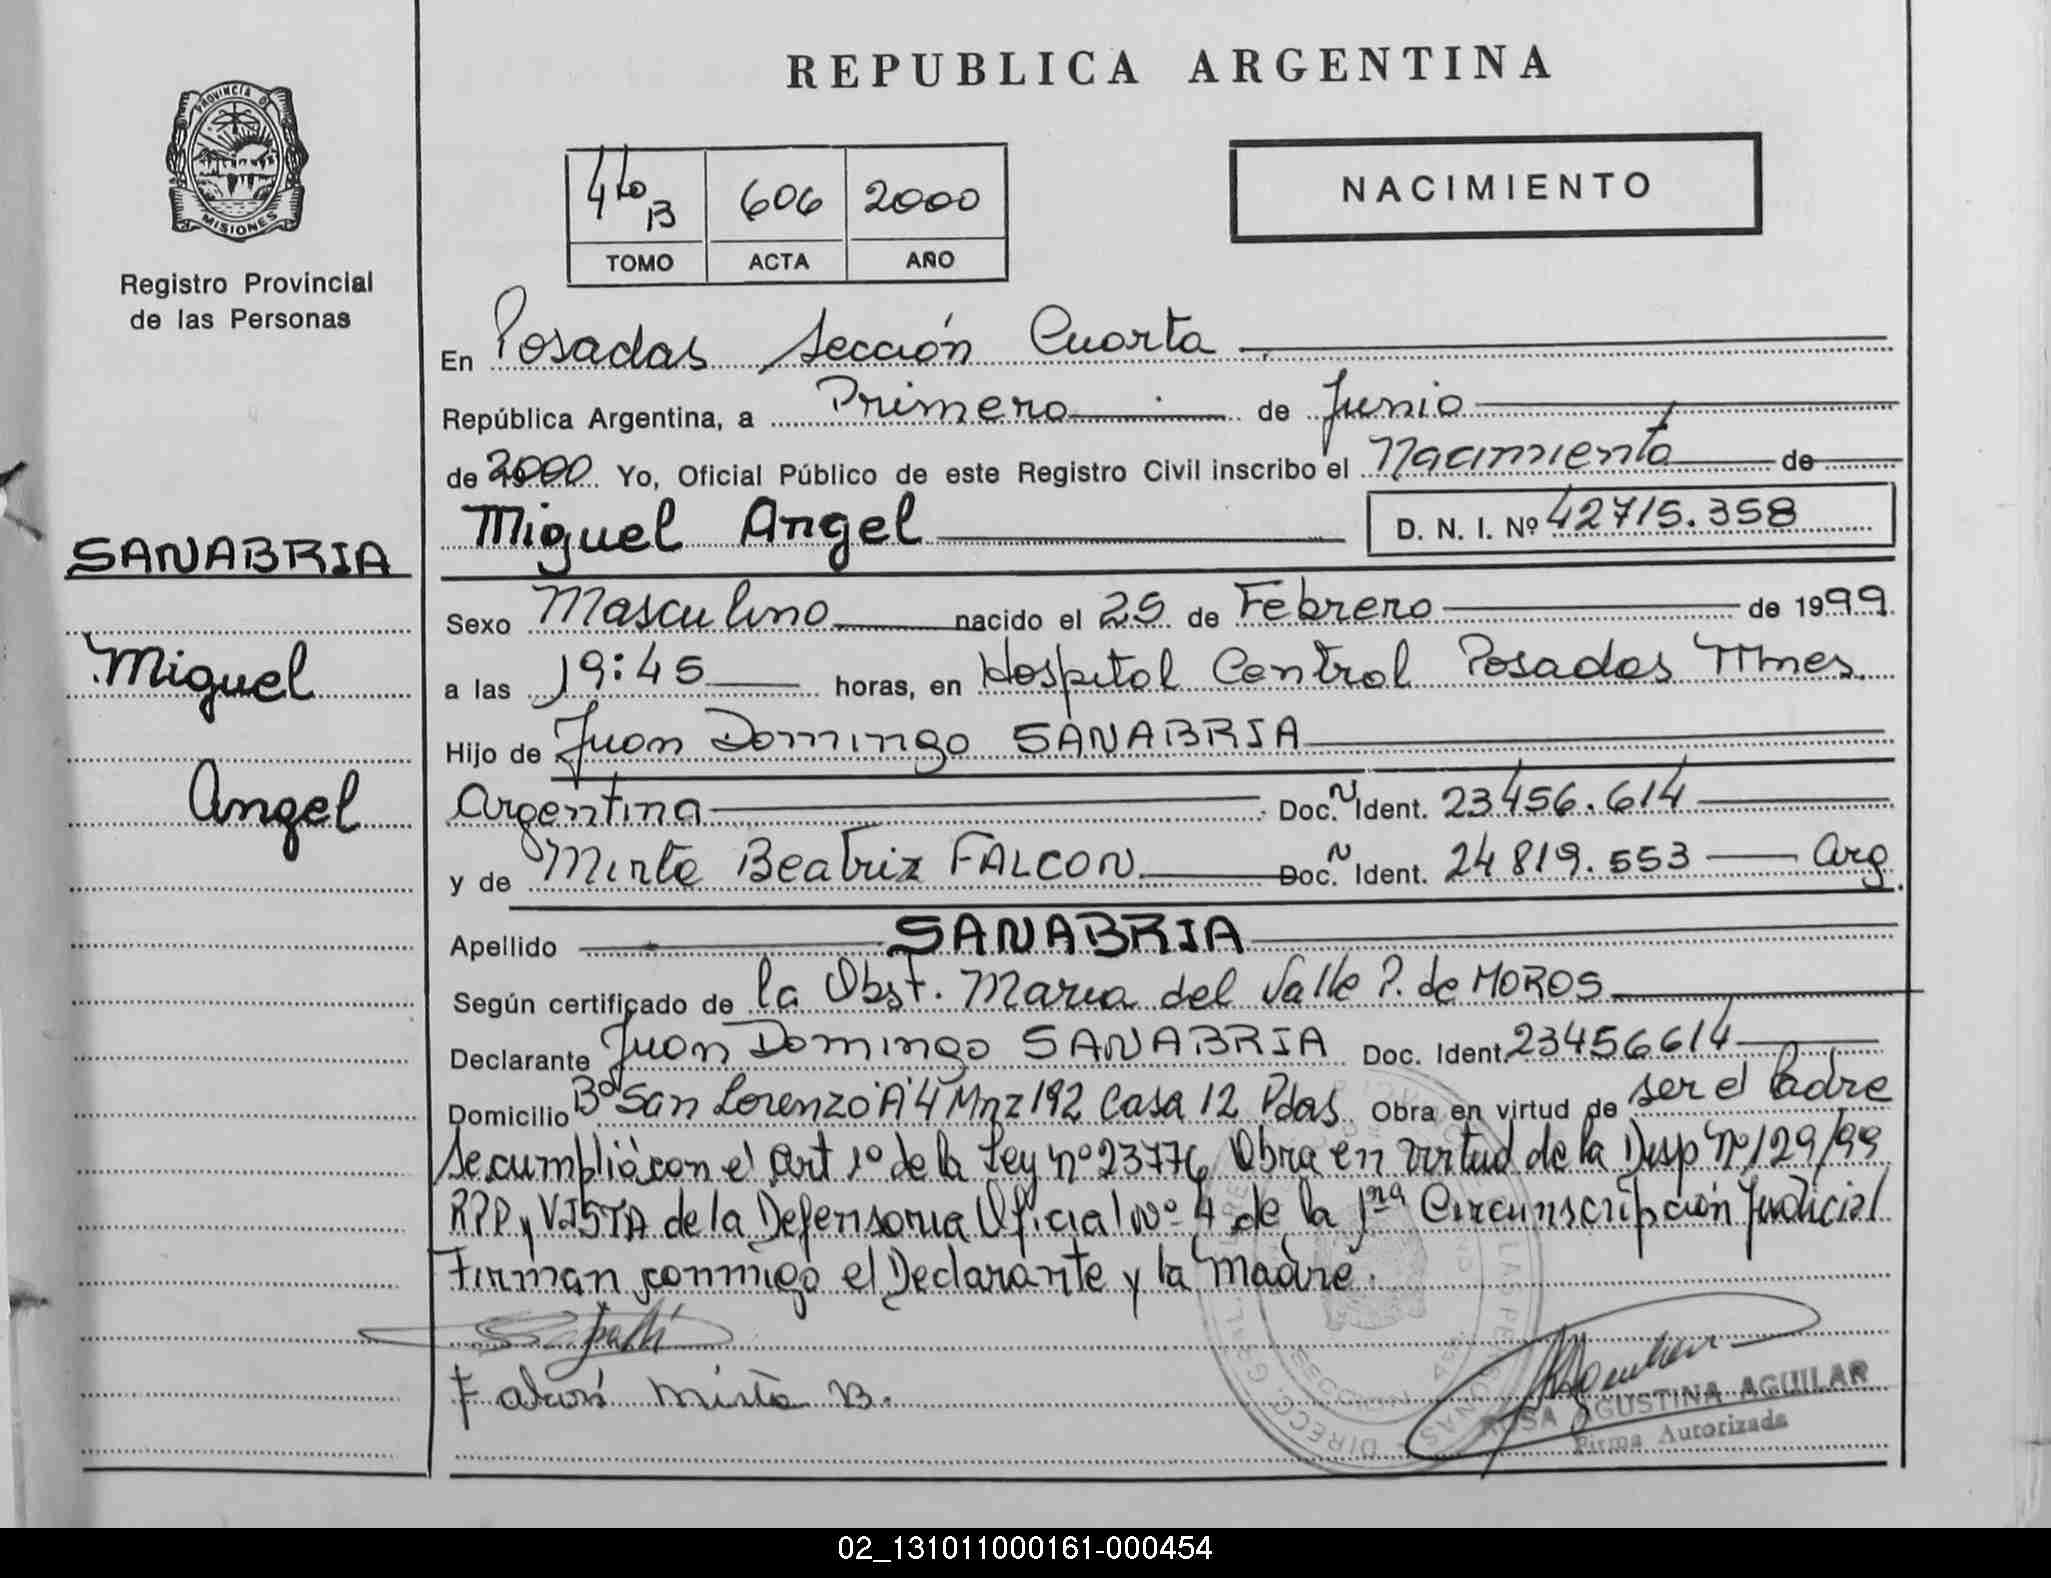 REPUBLICA ARGENTINA
PROVINCIA DE
MISIONES
Registro Provincial
de las Personas
4to B 606 2000
TOMO ACTA AÑO
NACIMIENTO
En Posadas Sección Cuarta
República Argentina, a Primero de Junio
de 2000 Yo, Oficial Público de este Registro Civil inscribo el Nacimiento de
Miguel Angel D. N. I. Nº 42715.358
SANABRIA
Miguel
Angel
Sexo Masculino nacido el 25 de Febrero de 1999
a las 19:45 horas, en Hospital Central Posadas Mnes.
Hijo de Juan Domingo SANABRIA
Argentina Doc. N Ident. 23456.614
y de Mirta Beatriz FALCON Doc. N Ident. 24819.553 Arg.
Apellido SANABRIA
Según certificado de la Obst. Maria del Valle P. de MOROS
Declarante Juan Domingo SANABRIA Doc. Ident. 23456614
Domicilio Bº San Lorenzo "A" 4 Mnz 192 Casa 12 Pdas Obra en virtud de ser el Padre
Se cumplió con el Art 1º de la Ley nº 23776 Obra en virtud de la Disp Nº 129/99
RPP y VISTA de la Defensoria Oficial Nº 4 de la 1ra Circunscripción Judicial
Firman conmigo el Declarante y la Madre.
Falcon Mirta B.
ROSA AGUSTINA AGUILAR
Firma Autorizada
02_131011000161-000454